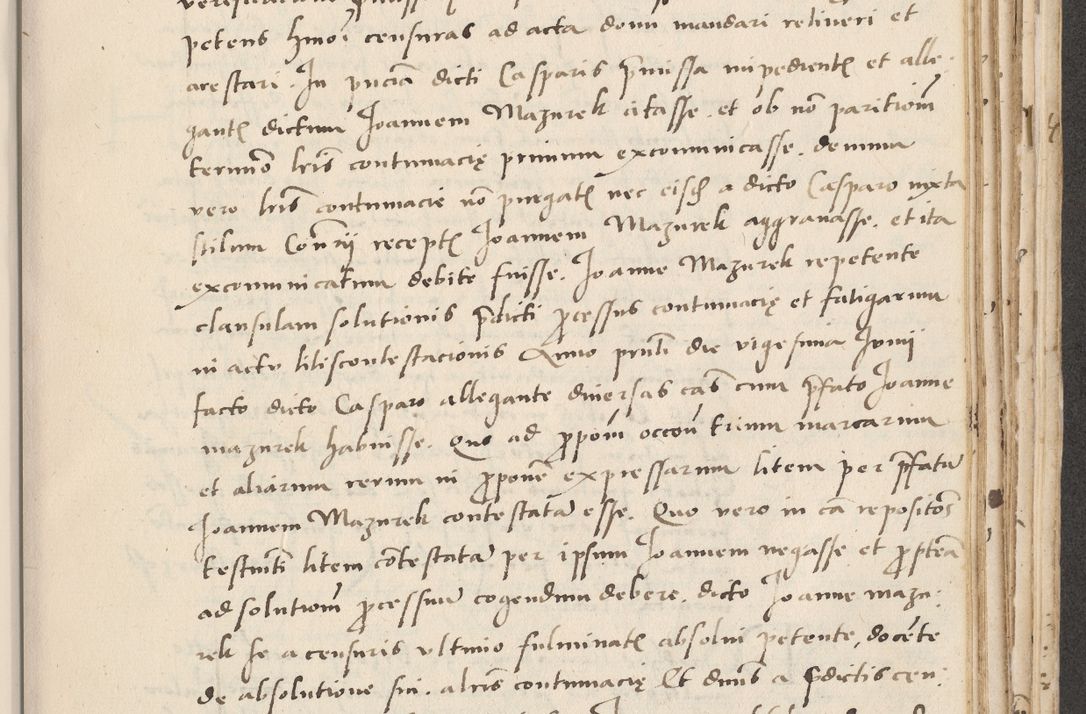 petens hmoi censuras ad acta domi mandari relineri et
arestari. In pncia dicti Casparis pmissa impedientz et alle-
gantz dictum Joannem Mazurek citasse. et ob no paritiom
termio lris contumacię primum excomunicasse. demum
vero lris contumacie no purgatz nec eisdz a dicto Casparo iuxta
stilum Conrij receptz Joannem Mazurek aggravasse. et ita
excomunicatum debite fuisse. Joanne Mazurek repetente
clausulam solutionis pdicti pcessus contumacię et fatigarum
in actu litiscontestacionis Anno pnti die vigesima Junij
facto dicto Casparo allegante diversas cas cum pfato Joanne
mazurek habuisse. Quo ad ppom occon trium marcarum
et aliarum rerum in pponē expressarum litem per pfatū
Joannem Mazurek contestatā esse. Quo vero in ca repositos
testmti litem cōtestatā per ipsum Joannem negasse et pptea
ad solutiom pcessuū cogendum debere, dicto Joanne mazu-
rek se a censuris ultimo fulminatz absolvi petente, docēte
de absolutione sui. alris contumacię Et dnus a pdictis cen-